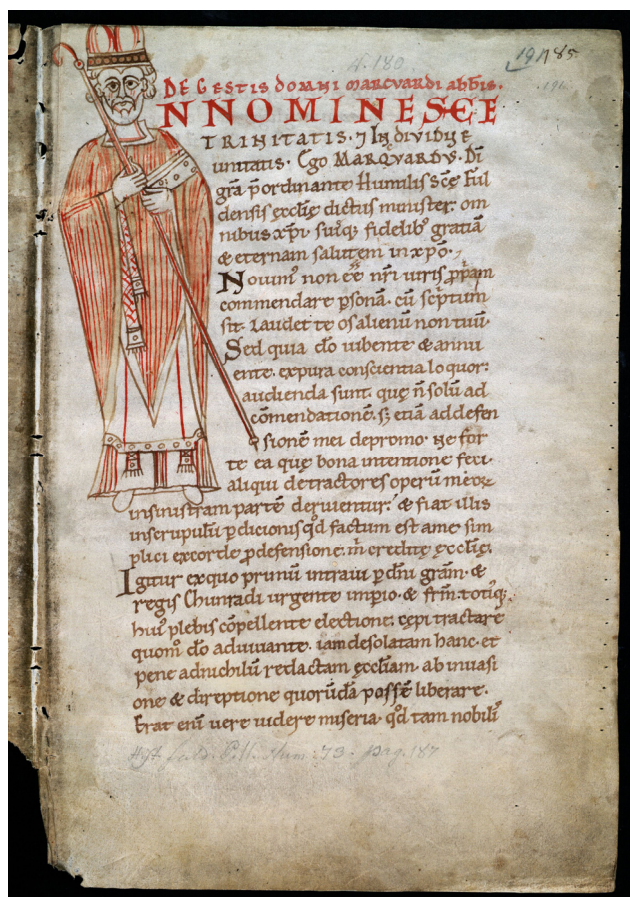 4. 180
19 185
DE GESTIS DOMNI MARCVARDI abbis.
N NOMINE SCE
TRINITATIS. 7 INDIVIDVE
unitatis. Ego MARQVARDVS. Dī
grā p̄ordinante humilis scę Ful
densis ęcclię dictus minister. om
nibus xp̄i suisq; fidelib; gratiā
& eternam salutem in xp̄o.
Nouim; non ēē nr̄i iuris ꝓp̄am
commendare psonā. cū scriptum
sit. Laudet te os alienū non tuū.
Sed quia dō iubente & annu
ente. ex pura conscientia loquor;
audienda sunt. quę n̄ solū ad
cōmendationē. s; etiā ad defen
sionē mei depromo. ne for
te ea quę bona intentione feci.
aliqui detractores operū meoꝝ
insinistram partē deriuentur. & fiat illis
inscrupulū pdicionis qd̄ factum est a me sim
plici excorde p defensione m̄ creditę ęcclię.
Igitur exquo primū intraui p dn̄i grām. &
regis Chunradi urgente impio. & frm̄ totiq;
hui; plebis cōpellente electione. cepi tractare
quom̄ dō adiuuante. iam desolatam hanc. et
pene adnichilū redactam ęccliam. ab inuasi
one & direptione quorūdā possē liberare.
Erat eni uere uidere miseria. qd̄ tam nobili;
Hist. fuld. 73. pag. 187